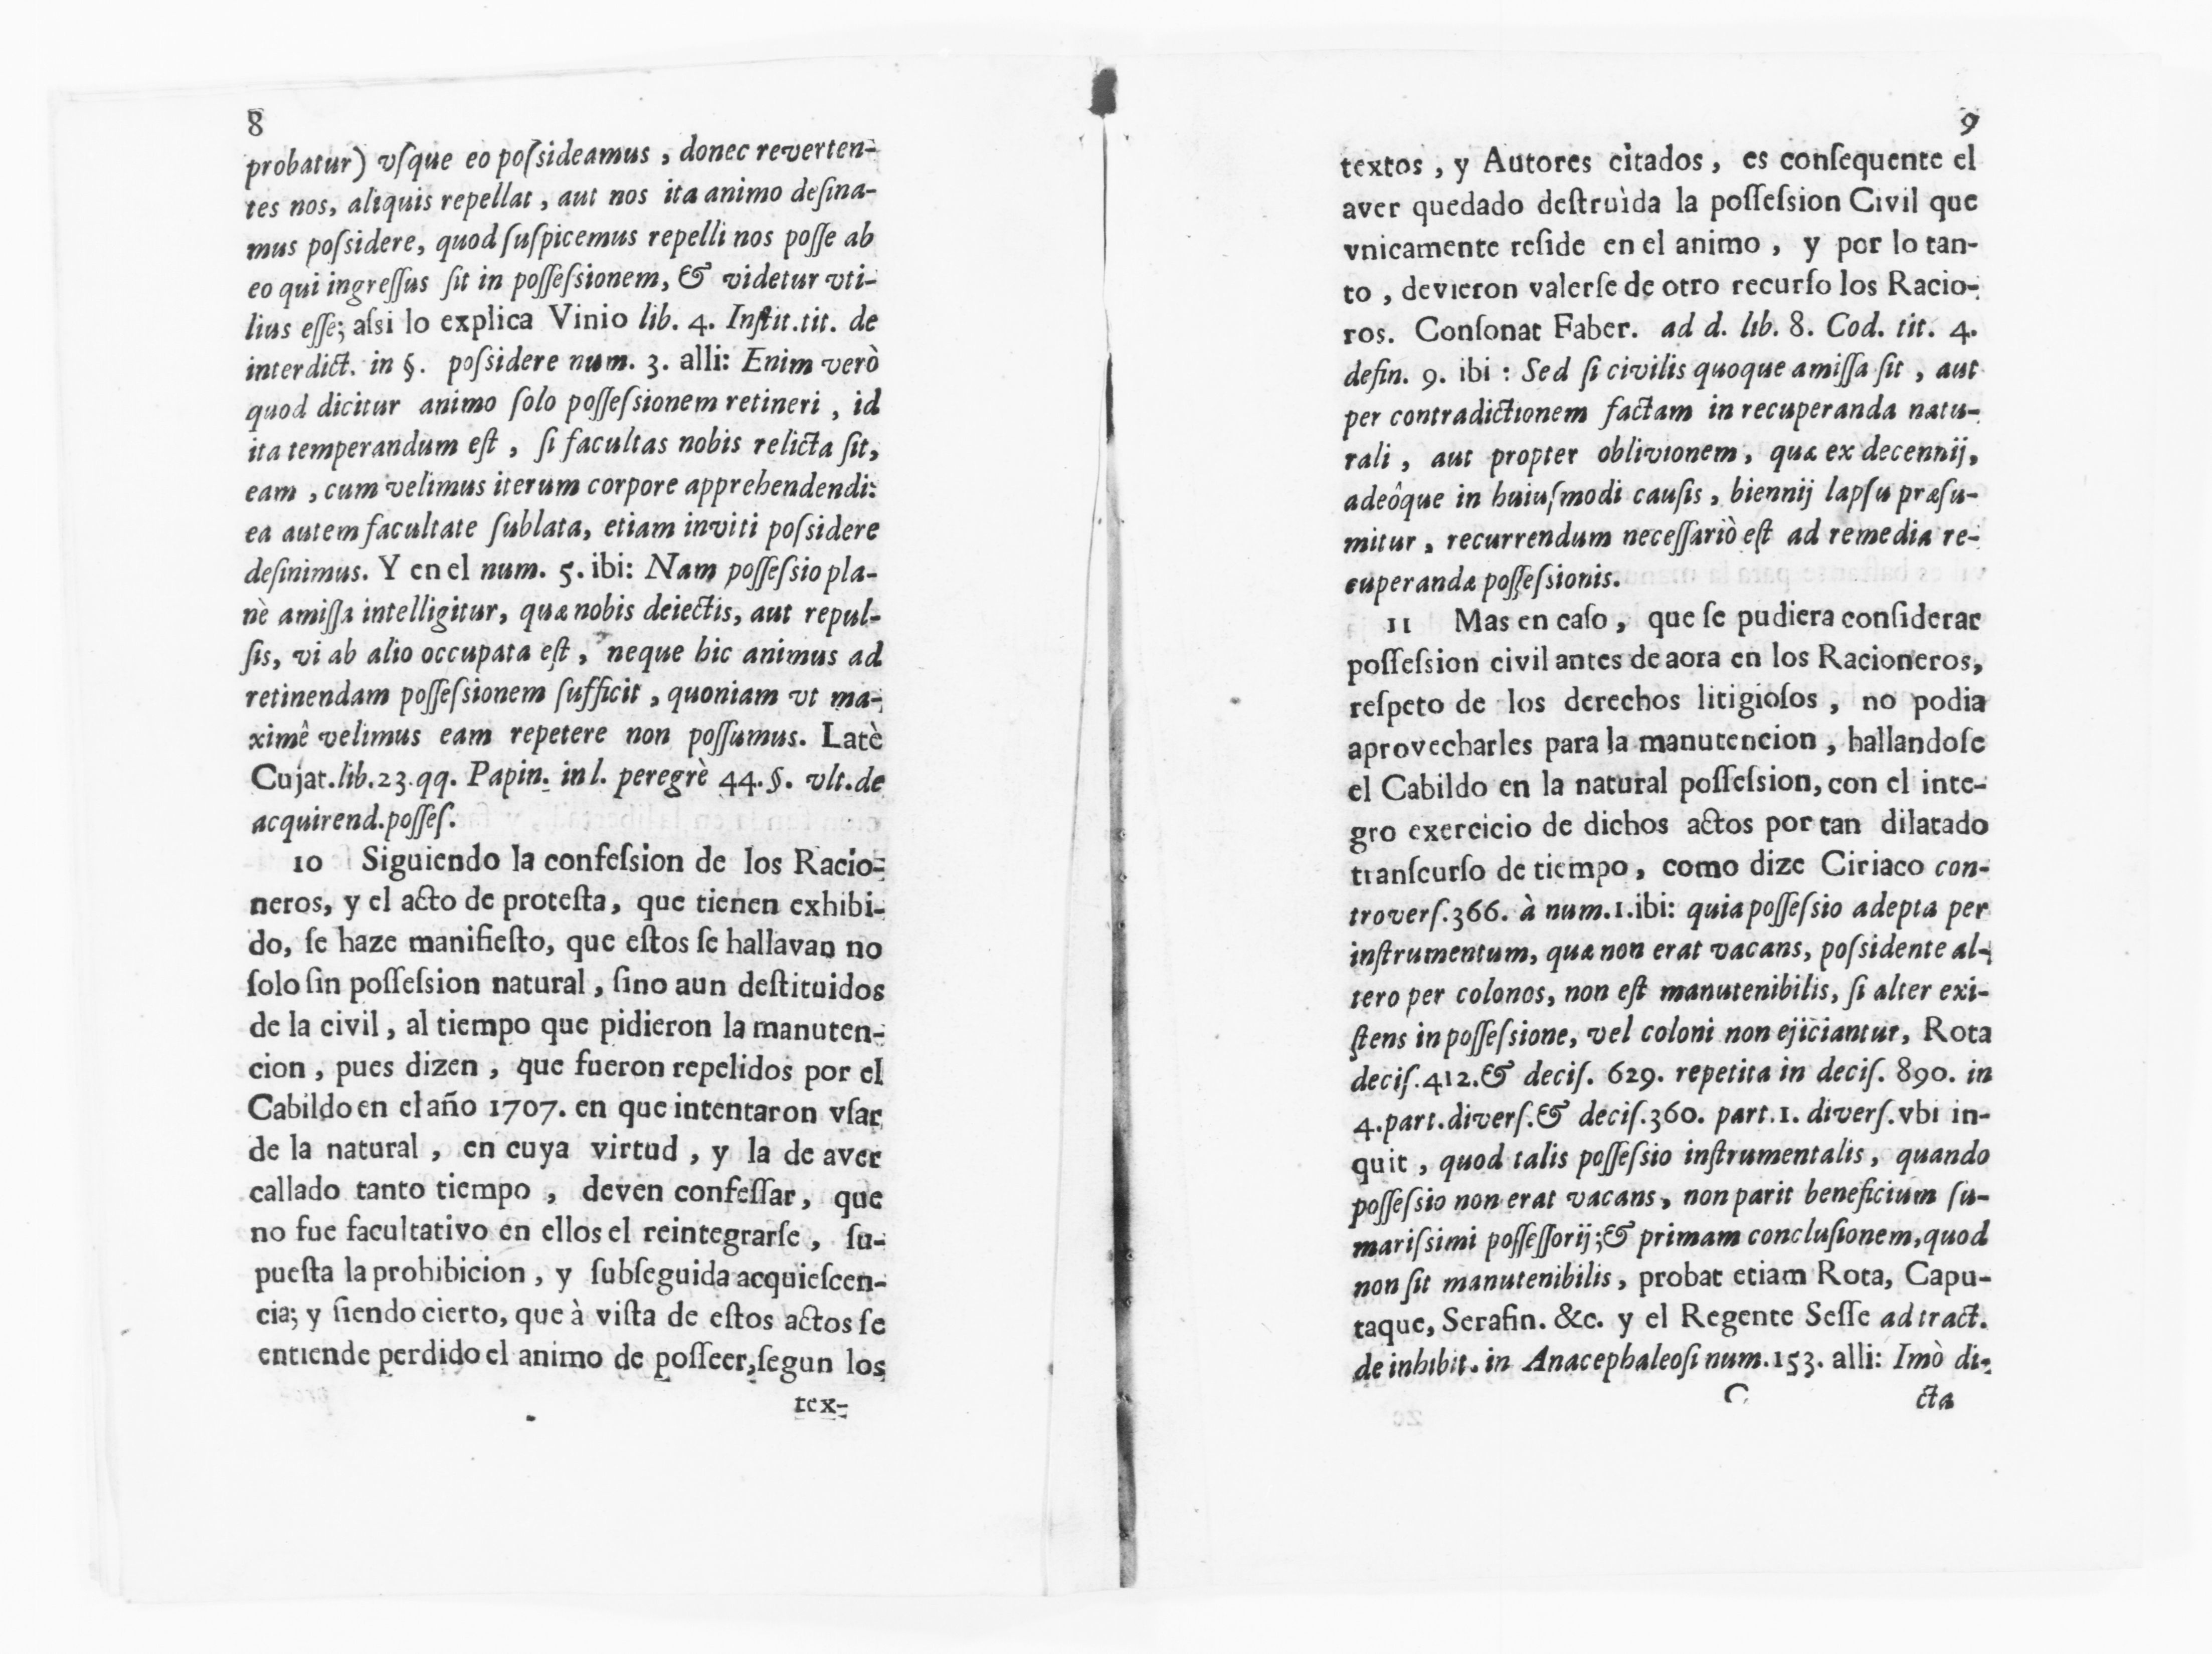 8
probatur) vſque eo poſsideamus, donec reverten-
tes nos, aliquis repellat, aut nos ita animo deſina-
mus poſsidere, quod ſuſpicemus repelli nos poſſe ab
eo qui ingreſſus ſit in poſſeſsionem, & videtur vti-
lius eſſe; aſsi lo explica Vinio lib. 4. Inſtit. tit. de
interdict. in §. poſsidere num. 3. alli: Enim verò
quod dicitur animo ſolo poſſeſsionem retineri, id
ita temperandum eſt, ſi facultas nobis relicta ſit,
eam, cum velimus iterum corpore apprehendendi:
ea autem facultate ſublata, etiam inviti poſsidere
deſinimus. Y en el num. 5. ibi: Nam poſſeſsio pla-
nè amiſſa intelligitur, quæ nobis deiectis, aut repul-
ſis, vi ab alio occupata eſt, neque hic animus ad
retinendam poſſeſsionem ſufficit, quoniam vt ma-
ximê velimus eam repetere non poſſumus. Latè
Cujat. lib. 23. qq. Papin. in l. peregrè 44. §. vlt. de
acquirend. poſſeſ.
10 Siguiendo la confeſsion de los Racio-
neros, y el acto de proteſta, que tienen exhibi-
do, ſe haze manifieſto, que eſtos ſe hallavan no
ſolo ſin poſſeſsion natural, ſino aun deſtituidos
de la civil, al tiempo que pidieron la manuten-
cion, pues dizen, que fueron repelidos por el
Cabildo en el año 1707. en que intentaron vſar
de la natural, en cuya virtud, y la de aver
callado tanto tiempo, deven confeſſar, que
no fue facultativo en ellos el reintegrarſe, ſu-
pueſta la prohibicion, y ſubſeguida acquieſcen-
cia; y ſiendo cierto, que à viſta de eſtos actos ſe
entiende perdido el animo de poſſeer, ſegun los
tex-
9
textos, y Autores citados, es conſequente el
aver quedado deſtruìda la poſſeſsion Civil que
vnicamente reſide en el animo, y por lo tan-
to, devieron valerſe de otro recurſo los Racio-
ros. Conſonat Faber. ad d. lib. 8. Cod. tit. 4.
defin. 9. ibi: Sed ſi civilis quoque amiſſa ſit, aut
per contradictionem factam in recuperanda natu-
rali, aut propter oblivionem, quæ ex decennij,
adeôque in huiuſmodi cauſis, biennij lapſu præſu-
mitur, recurrendum neceſſariò eſt ad remedia re-
cuperandæ poſſeſsionis.
11 Mas en caſo, que ſe pudiera conſiderar
poſſeſsion civil antes de aora en los Racioneros,
reſpeto de los derechos litigioſos, no podia
aprovecharles para la manutencion, hallandoſe
el Cabildo en la natural poſſeſsion, con el inte-
gro exercicio de dichos actos por tan dilatado
tranſcurſo de tiempo, como dize Ciriaco con-
troverſ. 366. à num. 1. ibi: quia poſſeſsio adepta per
inſtrumentum, quæ non erat vacans, poſsidente al-
tero per colonos, non eſt manutenibilis, ſi alter exi-
ſtens in poſſeſsione, vel coloni non ejiciantur, Rota
deciſ. 412. & deciſ. 629. repetita in deciſ. 890. in
4. part. diverſ. & deciſ. 360. part. 1. diverſ. vbi in-
quit, quod talis poſſeſsio inſtrumentalis, quando
poſſeſsio non erat vacans, non parit beneficium ſu-
mariſsimi poſſeſſorij; & primam concluſionem, quod
non ſit manutenibilis, probat etiam Rota, Capu-
taque, Serafin. &c. y el Regente Seſſe ad tract.
de inhibit. in Anacephaleoſi num. 153. alli: Imò di-
C cta